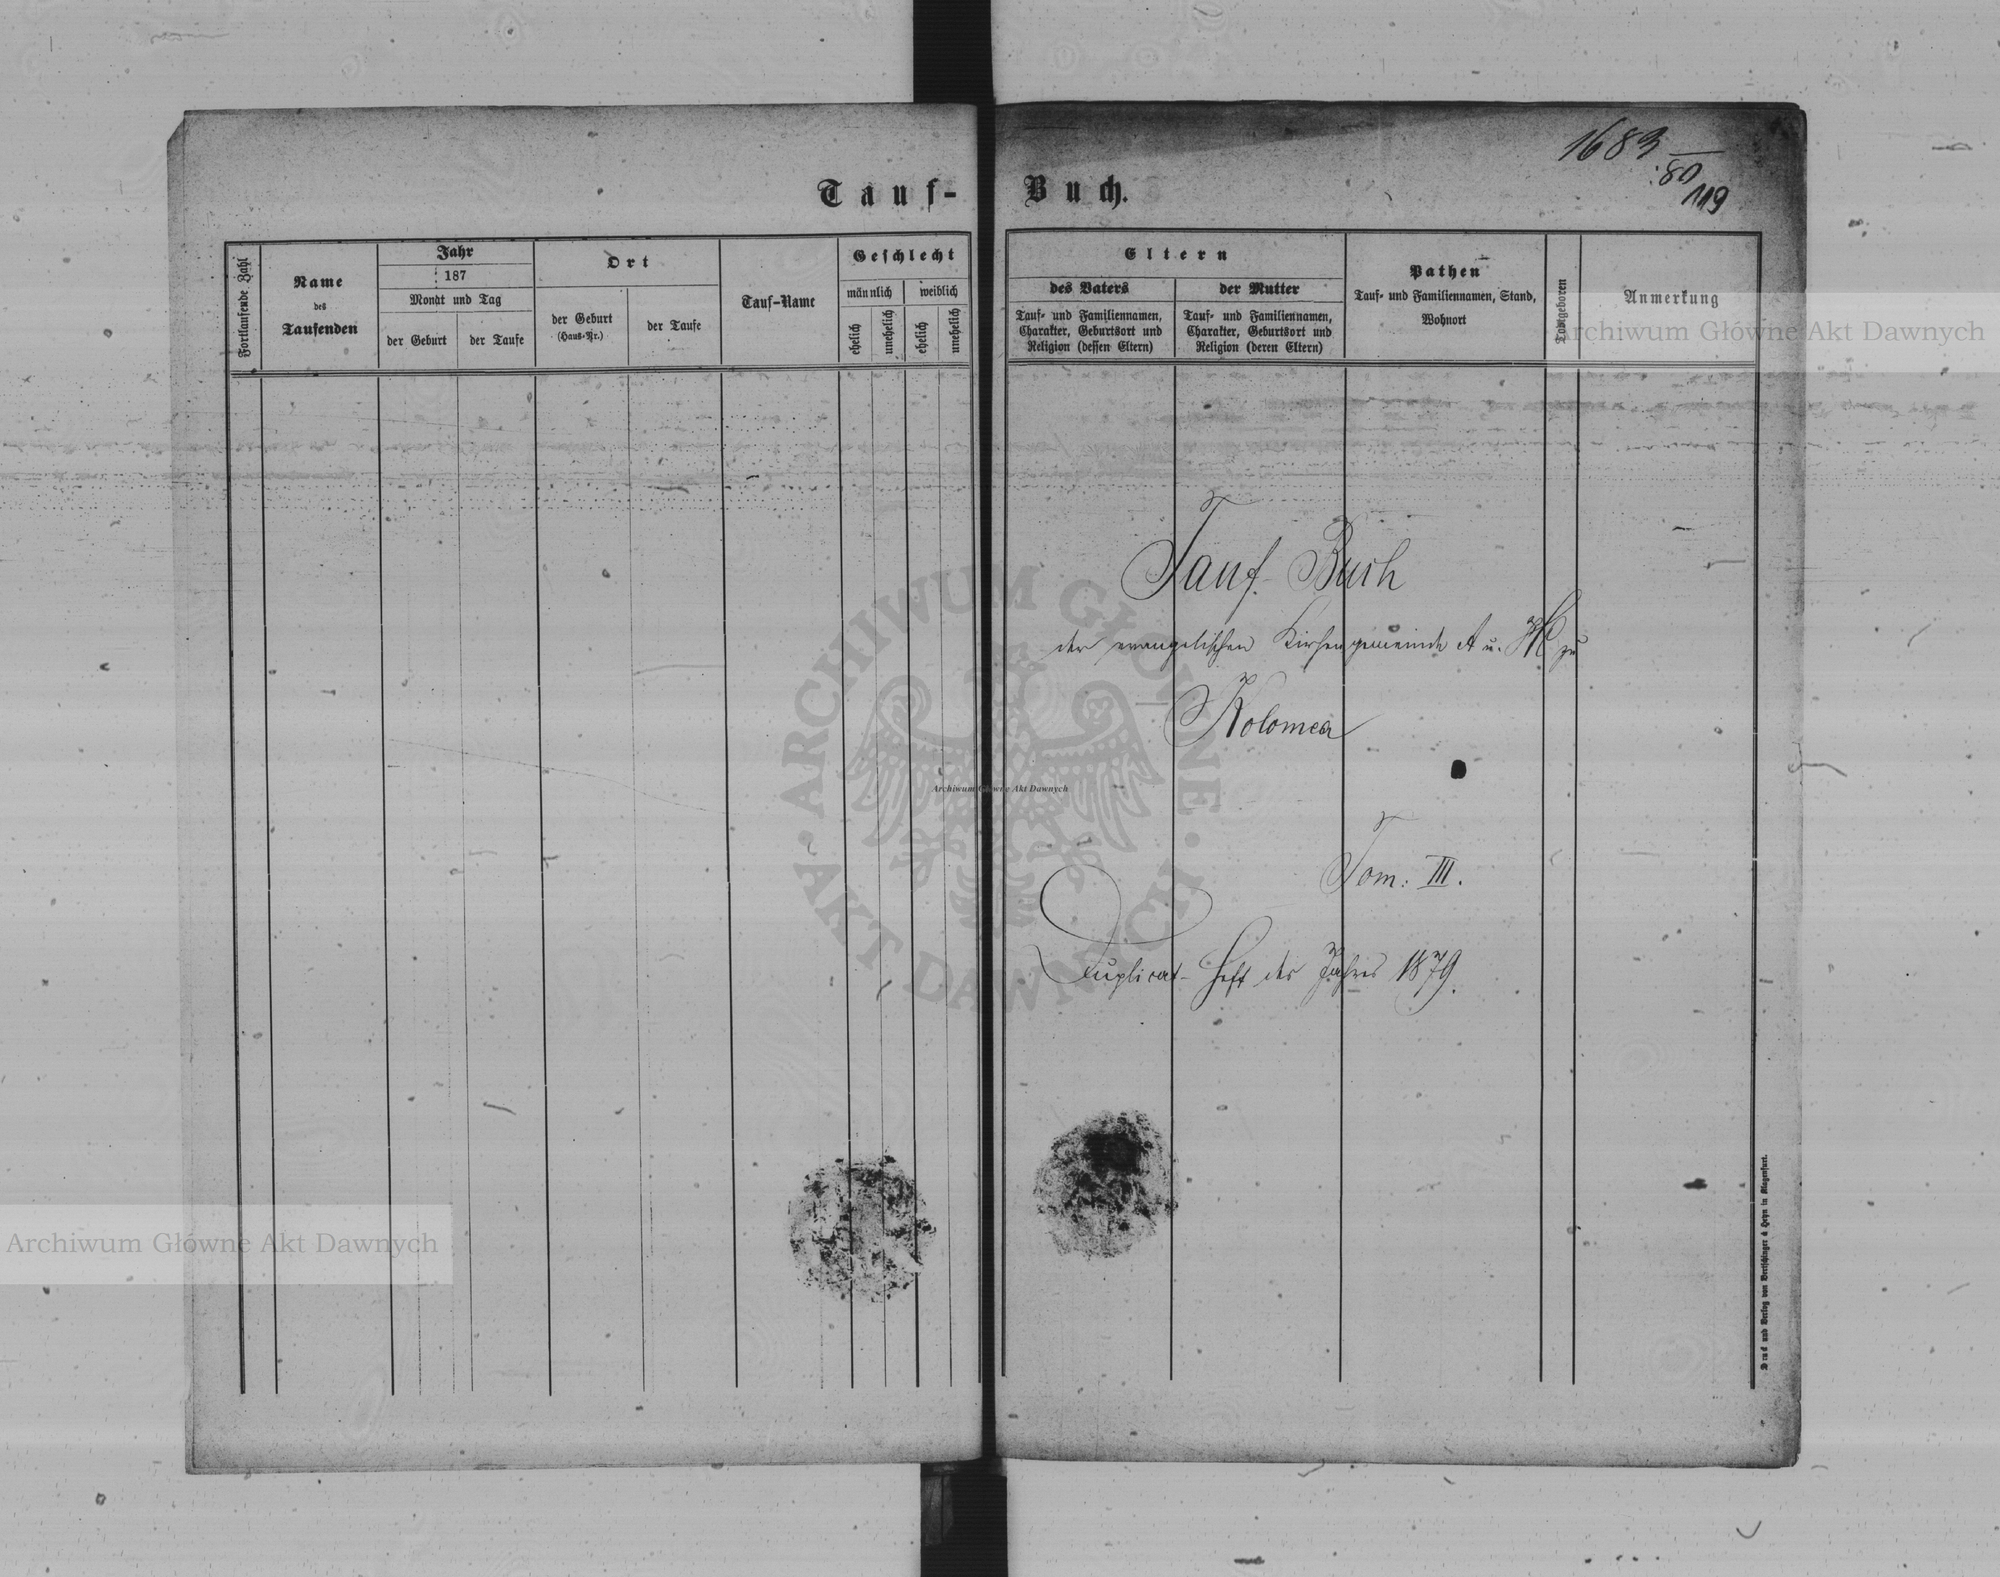 Tauf-
Fortlaufende Zahl
Name
des
Taufenden
Jahr
187
Monat und Tag
der Geburt
der Taufe
Ort
der Geburt
(Haus-Nr.)
der Taufe
Tauf-Name
Geschlecht
männlich
weiblich
ehelich
unehelich
ehelich
unehelich
Buch.
1683
80
119
Eltern
des Vaters
Tauf- und Familiennamen,
Charakter, Geburtsort und
Religion (dessen Eltern)
der Mutter
Tauf- und Familiennamen,
Charakter, Geburtsort und
Religion (deren Eltern)
Pathen
Tauf- und Familiennamen, Stand,
Wohnort
Todtgeboren
Anmerkung
Archiwum Główne Akt Dawnych
Tauf-Buch
der evangelischen Kirchengemeinde A u. H C zu
Kolomea
Tom: III.
Duplicat-Heft des Jahres 1879.
ARCHIWUM GŁÓWNE · AKT DAWNYCH ·
Archiwum Główne Akt Dawnych
Archiwum Główne Akt Dawnych
Druck und Verlag von Bertschinger & Heyn in Klagenfurt.